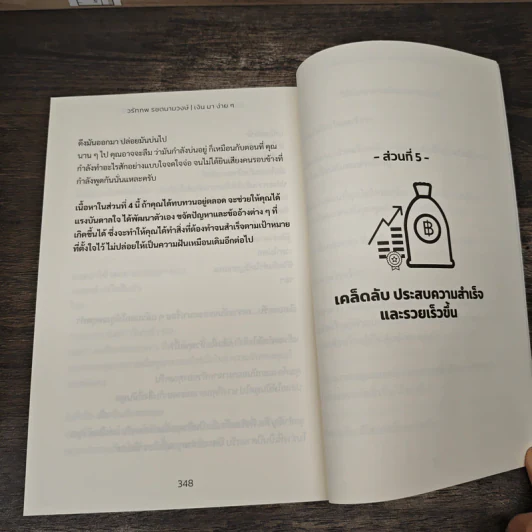 วรัทภพ รชตนามวงษ์ | เงิน มา ง่าย ๆ
ดึงมันออกมา ปล่อยมันบ่นไป
นาน ๆ ไป คุณอาจจะลืม ว่ามันกำลังบ่นอยู่ ก็เหมือนกับตอนที่ คุณ
กำลังทำอะไรสักอย่างแบบใจจดใจจ่อ จนไม่ได้ยินเสียงคนรอบข้างที่
กำลังพูดกันนั่นแหละครับ
เนื้อหาในส่วนที่ 4 นี้ ถ้าคุณได้ทบทวนอยู่ตลอด จะช่วยให้คุณได้
แรงบันดาลใจ ได้พัฒนาตัวเอง ขจัดปัญหาและข้ออ้างต่าง ๆ ที่
เกิดขึ้นได้ ซึ่งจะทำให้คุณได้ทำสิ่งที่ต้องทำจนสำเร็จตามเป้าหมาย
ที่ตั้งใจไว้ ไม่ปล่อยให้เป็นความฝันเหมือนเดิมอีกต่อไป
348
- ส่วนที่ 5 -
฿
เคล็ดลับ ประสบความสำเร็จ
และรวยเร็วขึ้น